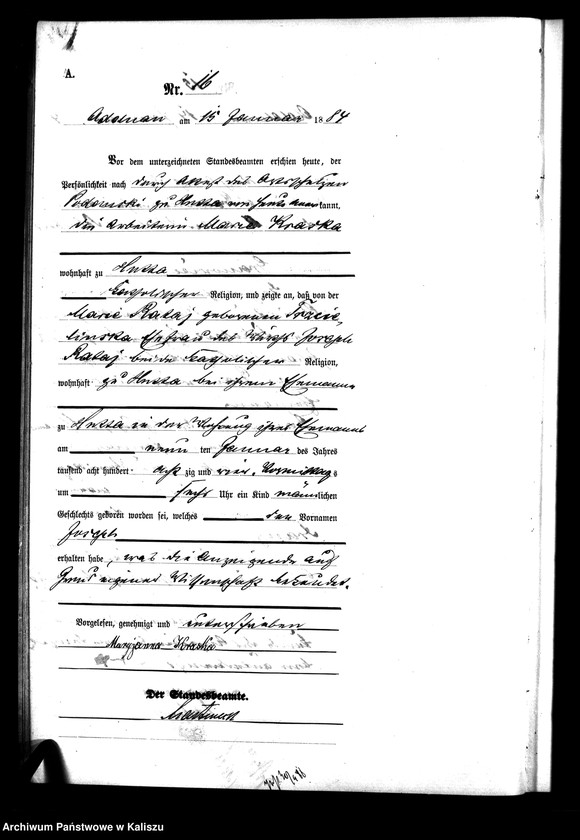 A.
Nr. 16
Adelnau am 15 Januar 1884
Vor dem unterzeichneten Standesbeamten erschien heute, der
Persönlichkeit nach durch Attest des Ortsschulzen
zu Hutta von heute anerkannt,
die Arbeiterin Marie Kraska
wohnhaft zu Hutta
katholischer Religion, und zeigte an, daß von der
Marie Rataj geborenen
Ehefrau des Wirths Joseph
Rataj beide katholischer Religion,
wohnhaft zu Hutta bei ihrem Ehemanne
zu Hutta in der Wohnung ihres Ehemanns
am neun ten Januar des Jahres
tausend acht hundert acht zig und vier, Vormittags
um sechs Uhr ein Kind männlichen
Geschlechts geboren worden sei, welches den Vornamen
Joseph
erhalten habe, was die Anzeigende auf
Grund eigener Wissenschaft bekundet.
Vorgelesen, genehmigt und unterschrieben
Maryjanna Kraska
Der Standesbeamte.
Archiwum Państwowe w Kaliszu